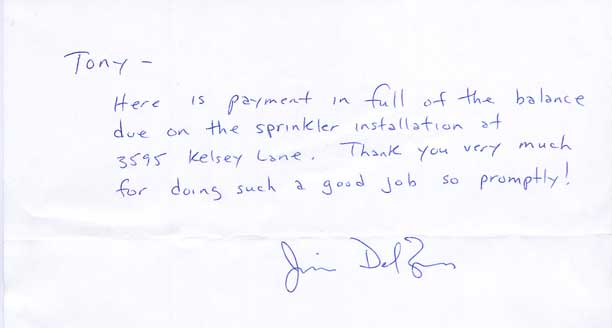 Tony -
Here is payment in full of the balance
due on the sprinkler installation at
3595 Kelsey Lane. Thank you very much
for doing such a good job so promptly!
Jim